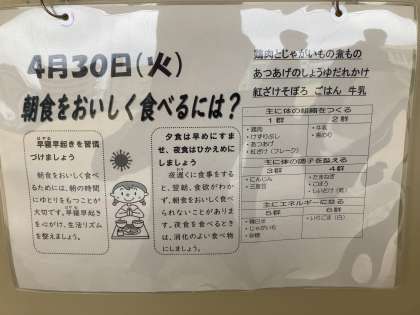 4月30日(火)
朝食をおいしく食べるには？
はやね はやお
早寝早起きを習慣
づけましょう
朝食をおいしく食べ
るためには、朝の時間
にゆとりをもつことが
大切です。早寝早起き
を心がけ、生活リズム
を整えましょう。
夕食は早めにすま
せ、夜食はひかえめに
しましょう
夜遅くに食事をする
と、翌朝、食欲がわか
ず、朝食をおいしく食べ
られないことがありま
す。夜食を食べるとき
は、消化のよい食べ物
にしましょう。
鶏肉とじゃがいもの煮もの
あつあげのしょうゆだれかけ
紅ざけそぼろ ごはん 牛乳
主に体の組織をつくる
1群 2群
・鶏肉 ・牛乳
・けずりぶし
・あつあげ
・紅ざけ（フレーク）
主に体の調子を整える
3群 4群
・にんじん ・たまねぎ
・ごぼう
・しいたけ（乾）
主にエネルギーになる
5群 6群
・精白米
・じゃがいも
・砂糖